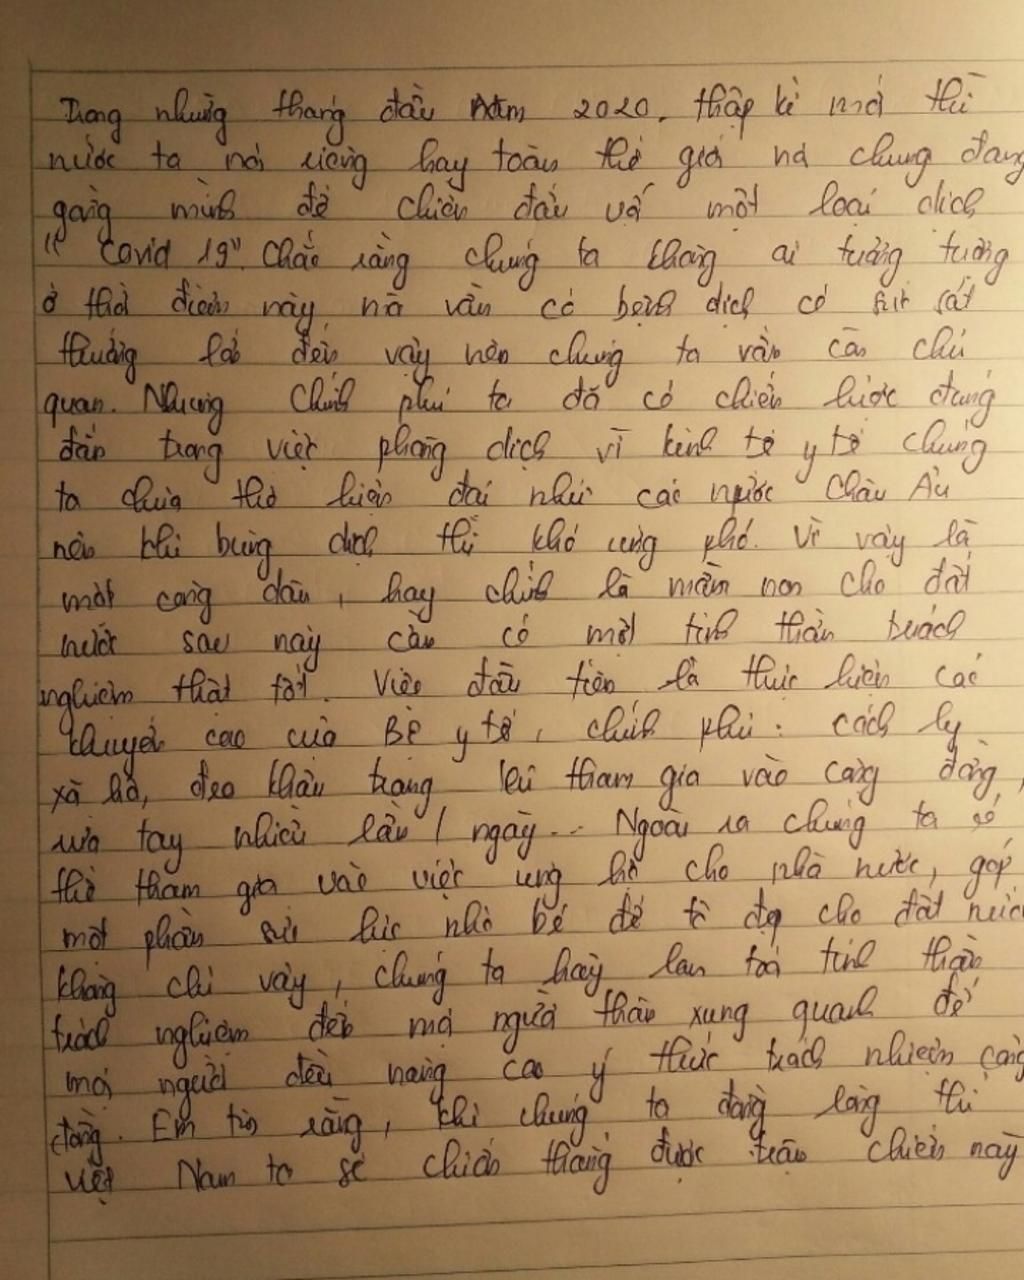 Trong những tháng đầu năm 2020, thập kỉ mới thì
nước ta nói riêng hay toàn thế giới nói chung đang
gồng mình để chiến đấu với một loại dịch
"Covid 19". Chắc rằng chúng ta không ai tưởng tượng
ở thời điểm này mà vẫn có bệnh dịch có sức sát
thương lớn đến vậy nên chúng ta vẫn còn chủ
quan. Nhưng Chính phủ ta đã có chiến lược đúng
đắn trong việc phòng dịch vì kinh tế y tế chúng
ta chưa thể hiện đại như các nước Châu Âu
nên khi bùng dịch thì khó ứng phó. Vì vậy là
một công dân, hay chính là mầm non cho đất
nước sau này cần có một tinh thần trách
nghiệm thật tốt. Việc đầu tiên là thực hiện các
khuyến cao của Bộ y tế, chính phủ: cách ly
xã hội, đeo khẩu trang khi tham gia vào cộng đồng,
rửa tay nhiều lần / ngày... Ngoài ra chúng ta có
thể tham gia vào việc ủng hộ cho nhà nước, góp
một phần sức lực nhỏ bé để tô đẹp cho đất nước
không chỉ vậy, chúng ta hãy lan toả tinh thần
trách nghiệm đến mọi người thân xung quanh để
mọi người đều nâng cao ý thức trách nhiệm cộng
đồng. Em tin rằng, khi chúng ta đồng lòng thì
Việt Nam ta sẽ chiến thắng được trận chiến này